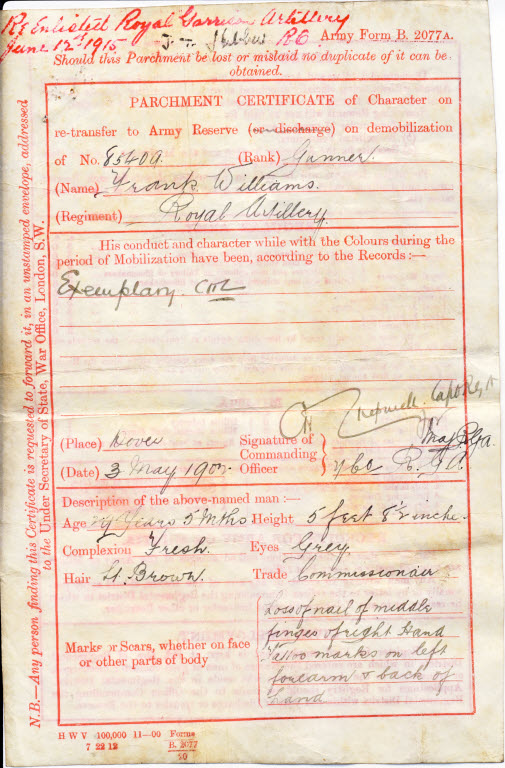 Re Enlisted Royal Garrison Artillery
June 12th 1915
R.O.
Army Form B. 2077A.
Should this Parchment be lost or mislaid no duplicate of it can be
obtained.
PARCHMENT CERTIFICATE of Character on
re-transfer to Army Reserve (or discharge) on demobilization
of No. 85409. (Rank) Gunner.
(Name) Frank Williams.
(Regiment) Royal Artillery
His conduct and character while with the Colours during the
period of Mobilization have been, according to the Records:—
Exemplary.
Capt R.G.A
Maj R.G.A.
(Place) Dover
Signature of
Commanding
Officer
R.G.A.
(Date) 3 May
Description of the above-named man:—
Age Years 5 Mths Height 5 feet 8½ inche.
Complexion Fresh. Eyes Grey.
Hair Lt. Brown. Trade Commissionair.
Marks or Scars, whether on face
or other parts of body
Loss of nail of middle
finger of right Hand
Tattoo marks on left
forearm & back of
hand
H W V 100,000 11—00 Forms
7 22 12 B. 2077
N.B.—Any person finding this Certificate is requested to forward it, in an unstamped envelope, addressed
to the Under Secretary of State, War Office, London, S.W.